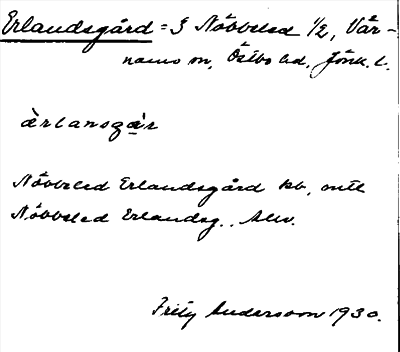 Erlandsgård = 3 Nöbbeled 1/2, Vär-
namo sn, Östbo hd, Jönk. l.
àrlansgàr
Nöbbeled Erlandsgård kb, mtl
Nöbbeled Erlandsg..
Andersson 1930.